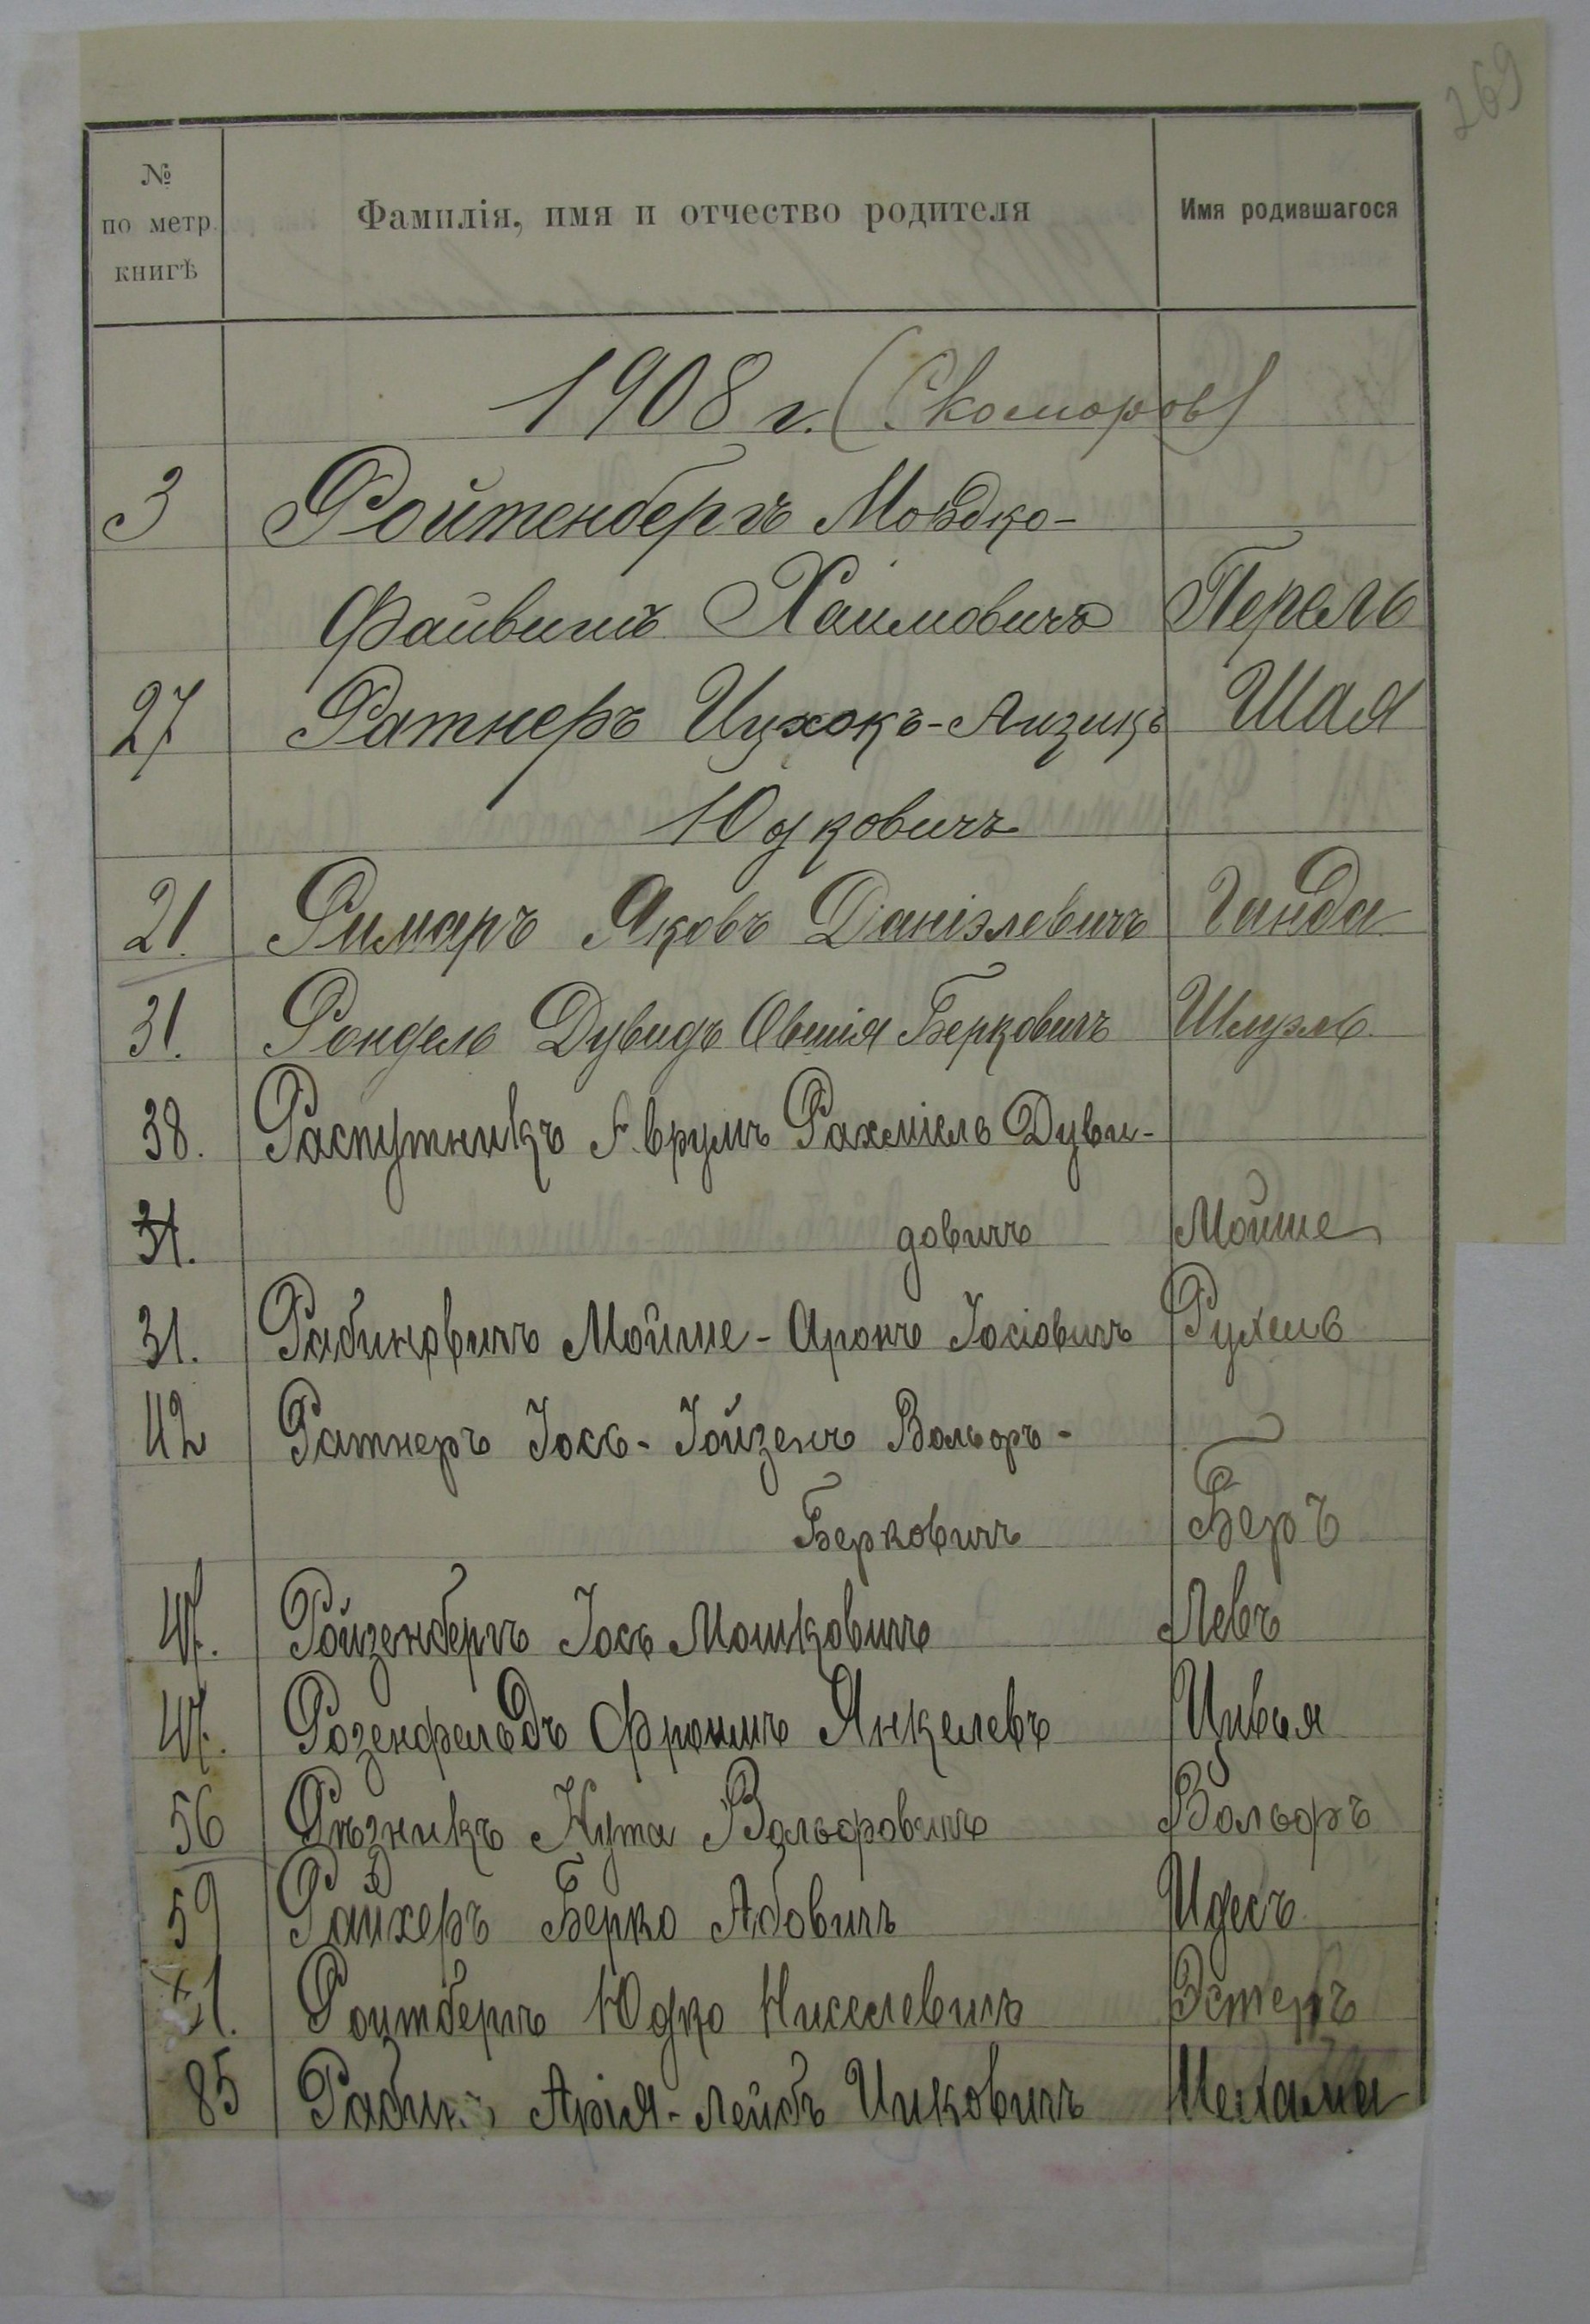 269
№ по метр. книгѣ
Фамилія, имя и отчество родителя
Имя родившагося
1908 г. (Скоморов)
3 Ройтенбергъ Мовдко-
Файвишъ Хаимовичъ Перель
27 Ратнеръ Ицхокъ-Аизикъ Шая
Юдковичъ
21. Римаръ Яковъ Даніэлевичъ Ганда
31. Рондель Дувидъ Овшія Берковичъ Шлузль
38. Распутникъ Аврумъ Рахміель Дуви-
31. довичъ Мойше
31. Рабиновичъ Мойше-Аронъ Іосіовичъ Рухель
42 Ратнеръ Іось-Іойзепъ Вольфъ-
Берковичъ Беръ
47. Ройзенбергъ Іось Мошковичъ Левъ
47. Розенфельдъ Фроимъ Янкелевъ Цивья
56 Рѣзникъ Нута Вольфовичъ Вольфъ
59 Райхеръ Берко Абовичъ Идесъ
Роитбергъ Юдко Нисселевичъ Эстеръ
85 Арія-Лейбъ Ицковичъ